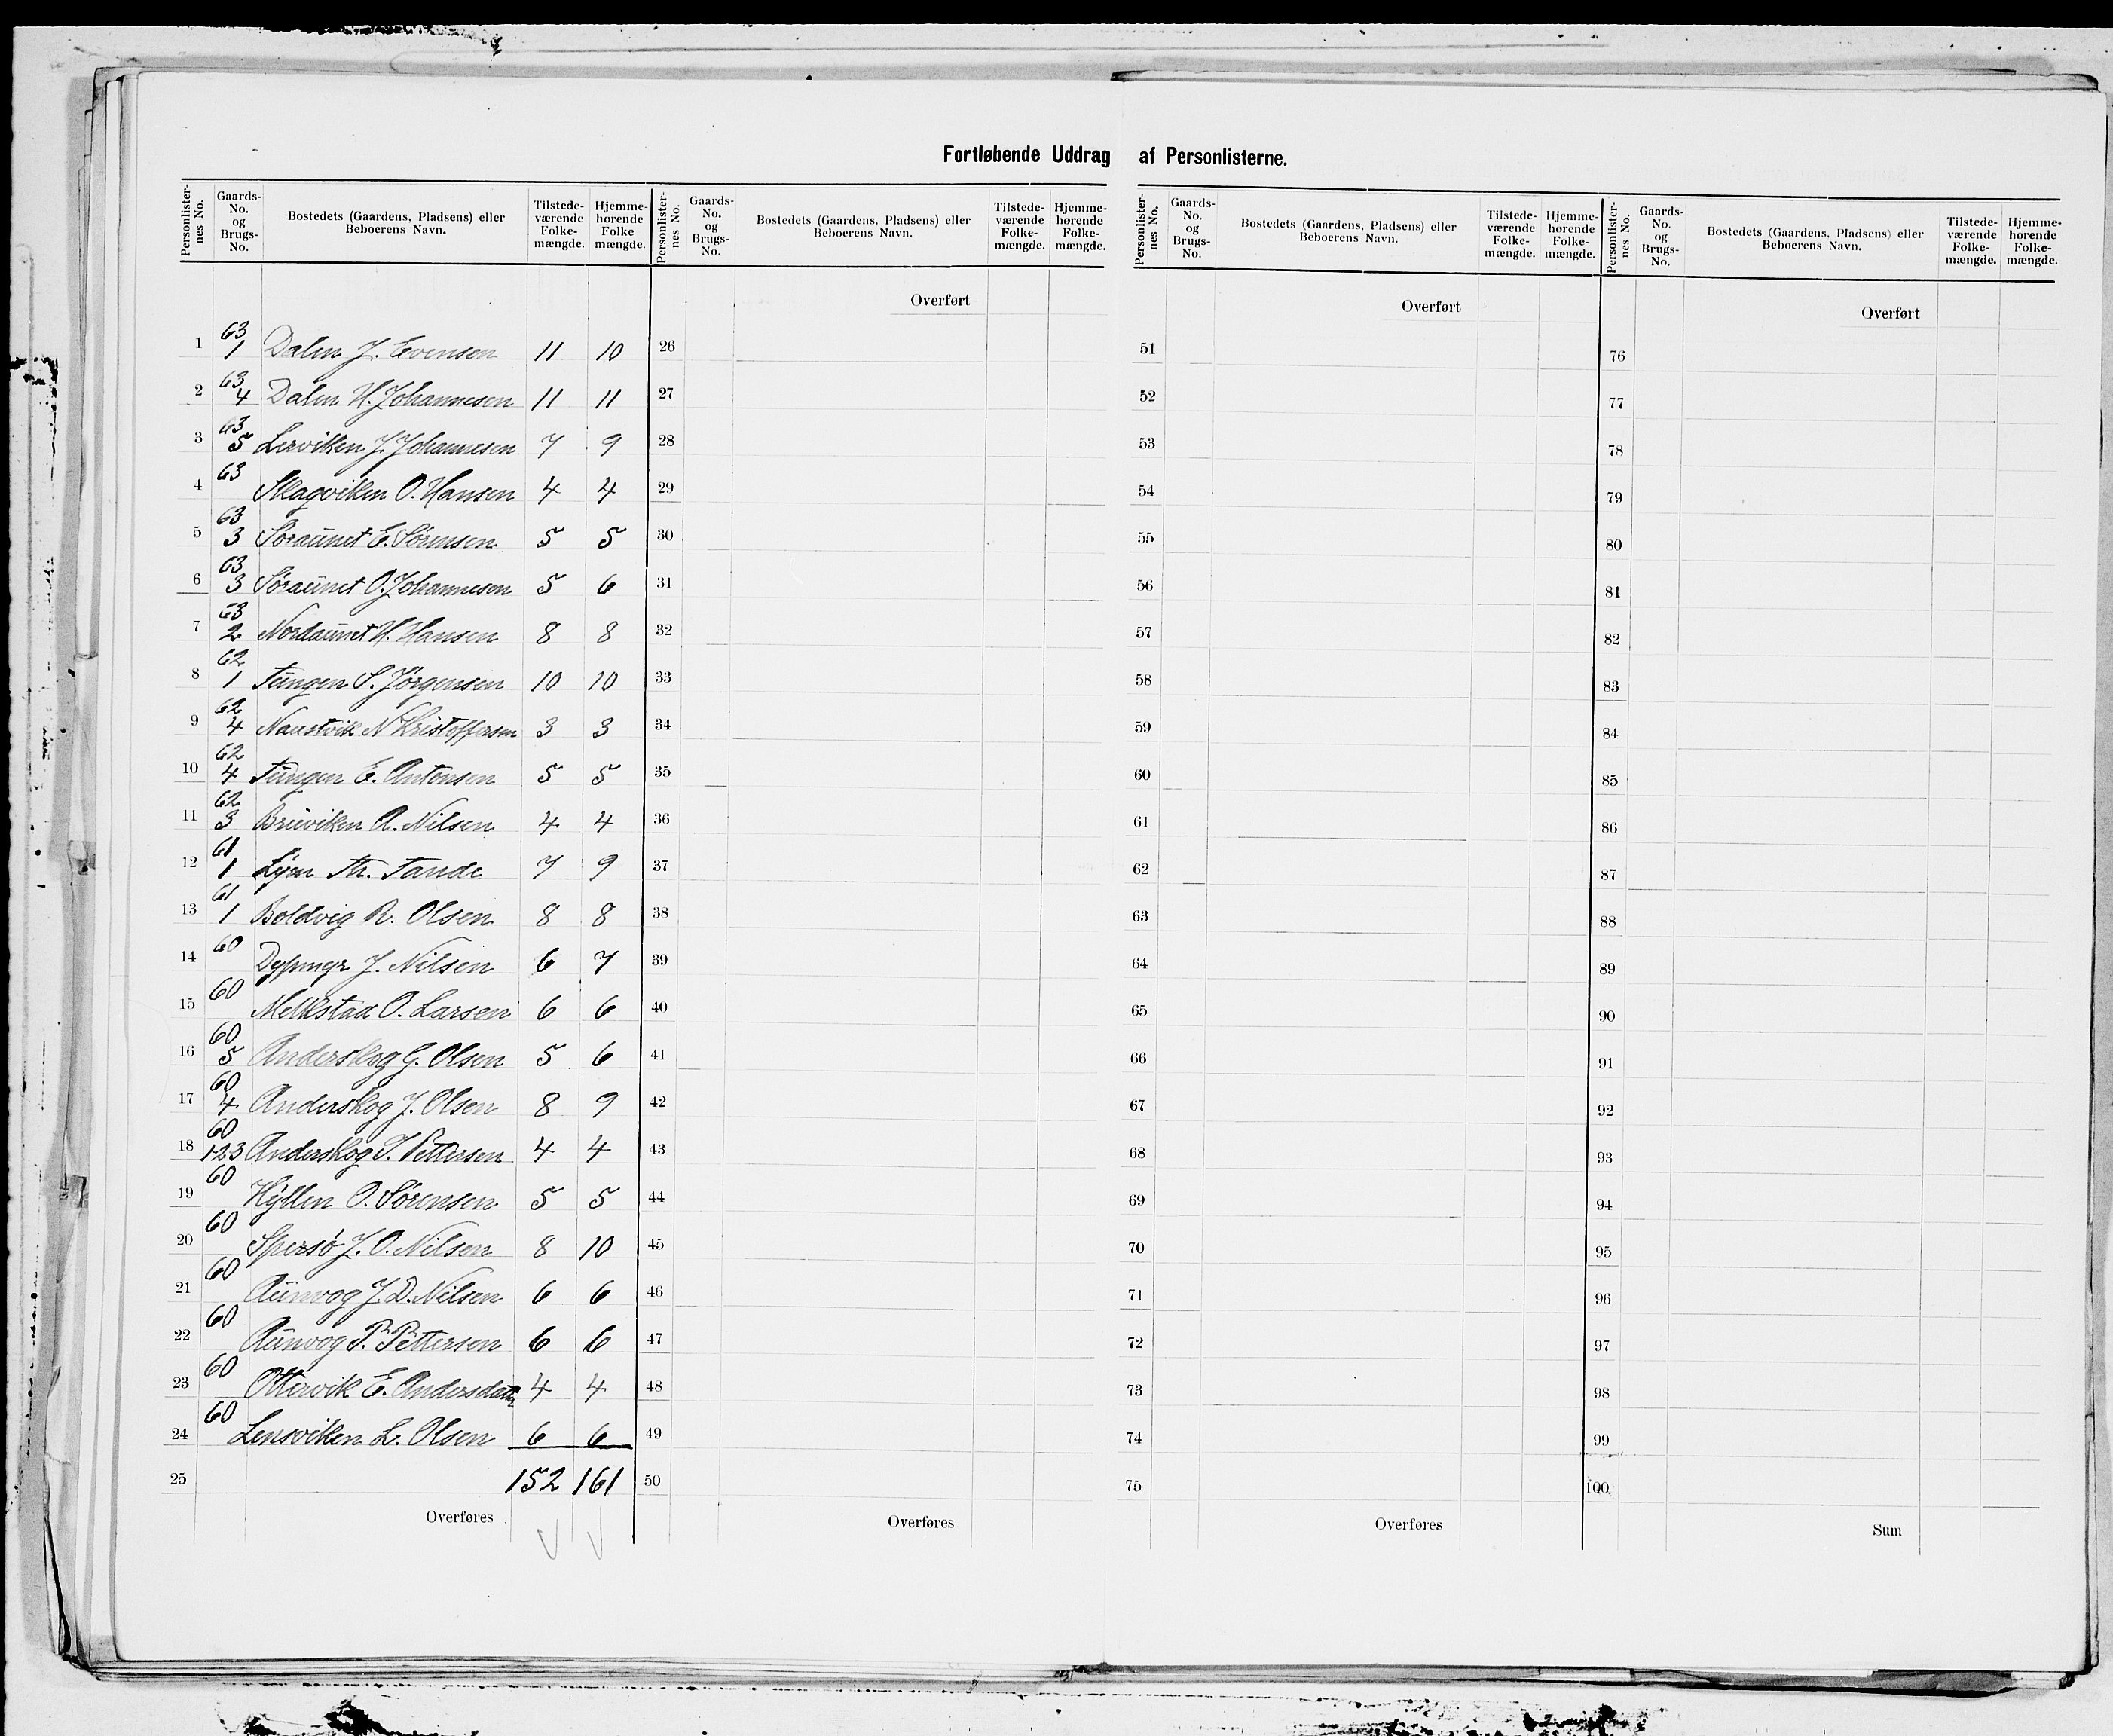 Fortløbende Uddrag af Personlisterne.
Personlister-nes No. Gaards-No. og Brugs-No. Bostedets (Gaardens, Pladsens) eller Beboerens Navn. Tilstede-værende Folke-mængde. Hjemme-hørende Folke mængde.
1 63/1 Dalen J. Evensen 11 10
2 63/4 Dalen H. Johannesen 11 11
3 63/5 Lerviken J. Johannesen 7 9
4 63 Skagviken O. Hansen 4 4
5 63/3 Søraunet E. Sørensen 5 5
6 63/3 Søraunet O. Johannesen 5 6
7 63/2 Nordaunet H. Hansen 8 8
8 62/1 Tungen S. Jørgensen 10 10
9 62/4 Naustvik N Kristoffersen 3 3
10 62/4 Tungen E. Antonsen 5 5
11 62/3 Brueviken A. Nilsen 4 4
12 61/1 Lyen Th. Tande 7 9
13 61/1 Boldvig R. Olsen 8 8
14 60 J. Nilsen 6 7
15 60 Melkstad O. Larsen 6 6
16 60/5 Anderskog G. Olsen 5 6
17 60/4 Anderskog J. Olsen 8 9
18 60/1-2-3 Anderskog P. Pettersen 4 4
19 60 Hyllen O. Sørensen 5 5
20 60 Spersø J. O. Nilsen 8 10
21 60 Aunvog J. D. Nilsen 6 6
22 60 Aunvog P. Pettersen 6 6
23 60 Ottervik E. Andersdatter 4 4
24 60 Lensviken L. Olsen 6 6
25 152 161
Overføres
Personlister-nes No. Gaards-No. og Brugs-No. Bostedets (Gaardens, Pladsens) eller Beboerens Navn. Tilstede-værende Folke-mængde. Hjemme-hørende Folke-mængde.
Overført
26
27
28
29
30
31
32
33
34
35
36
37
38
39
40
41
42
43
44
45
46
47
48
49
50
Overføres
Personlister-nes No. Gaards-No. og Brugs-No. Bostedets (Gaardens, Pladsens) eller Beboerens Navn. Tilstede-værende Folke-mængde. Hjemme-hørende Folke-mængde.
Overført
51
52
53
54
55
56
57
58
59
60
61
62
63
64
65
66
67
68
69
70
71
72
73
74
75
Overføres
Personlister-nes No. Gaards-No. og Brugs-No. Bostedets (Gaardens, Pladsens) eller Beboerens Navn. Tilstede-værende Folke-mængde. Hjemme-hørende Folke-mængde.
Overført
76
77
78
79
80
81
82
83
84
85
86
87
88
89
90
91
92
93
94
95
96
97
98
99
100
Sum